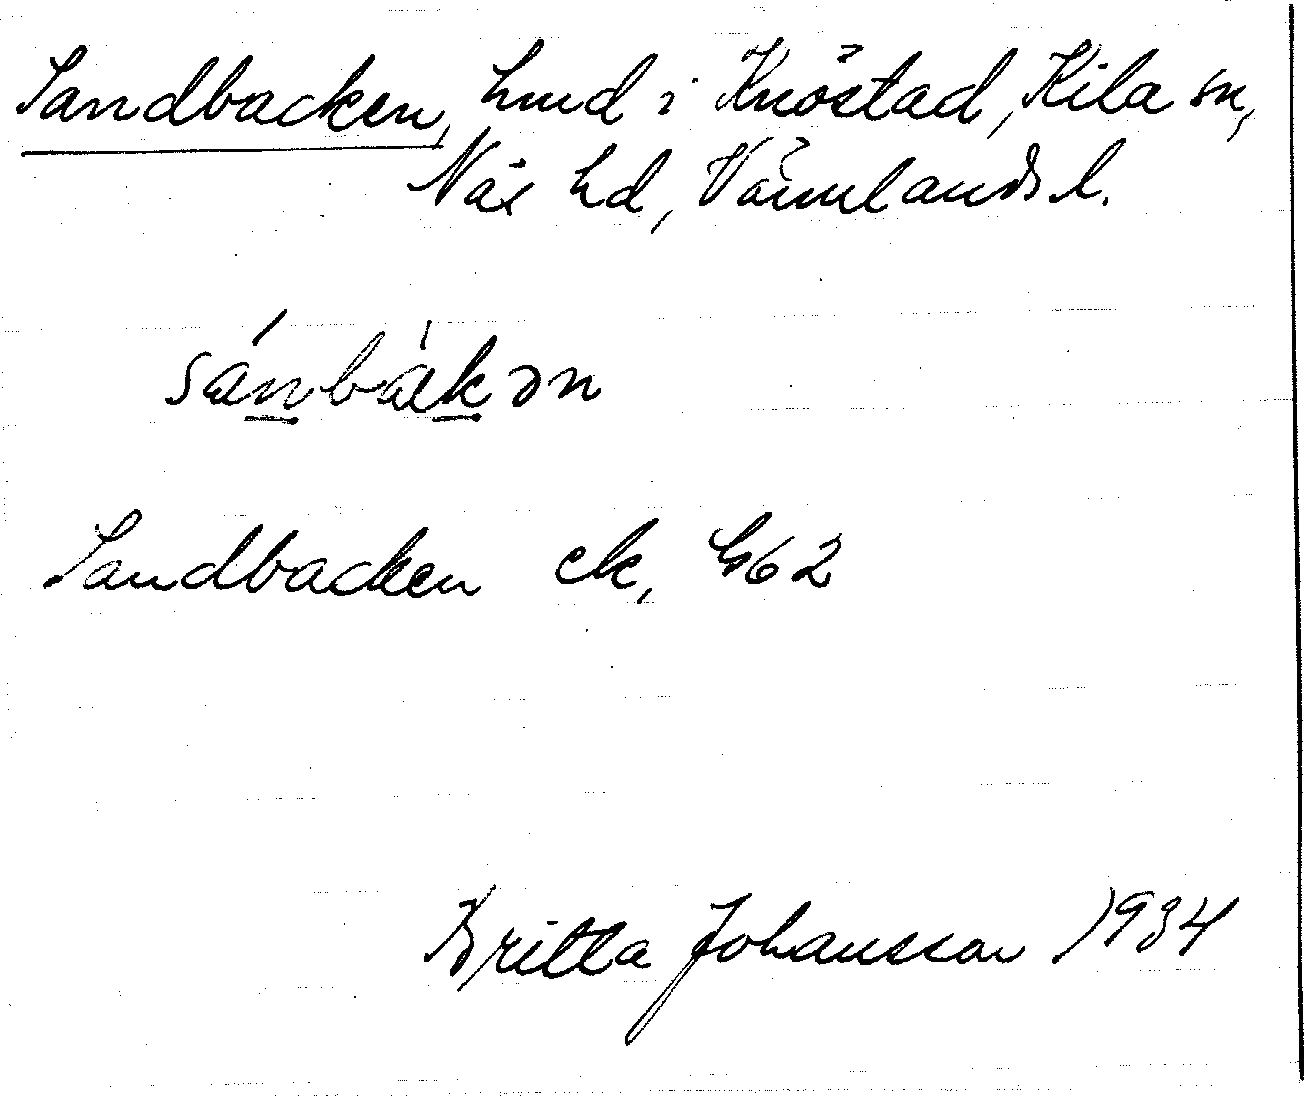 Sandbacken, hmd i Knöstad, Kila sn,
Näs hd, Värmlands l.
sánbàkən
Sandbacken ek, G62
Britta Johansson 1934